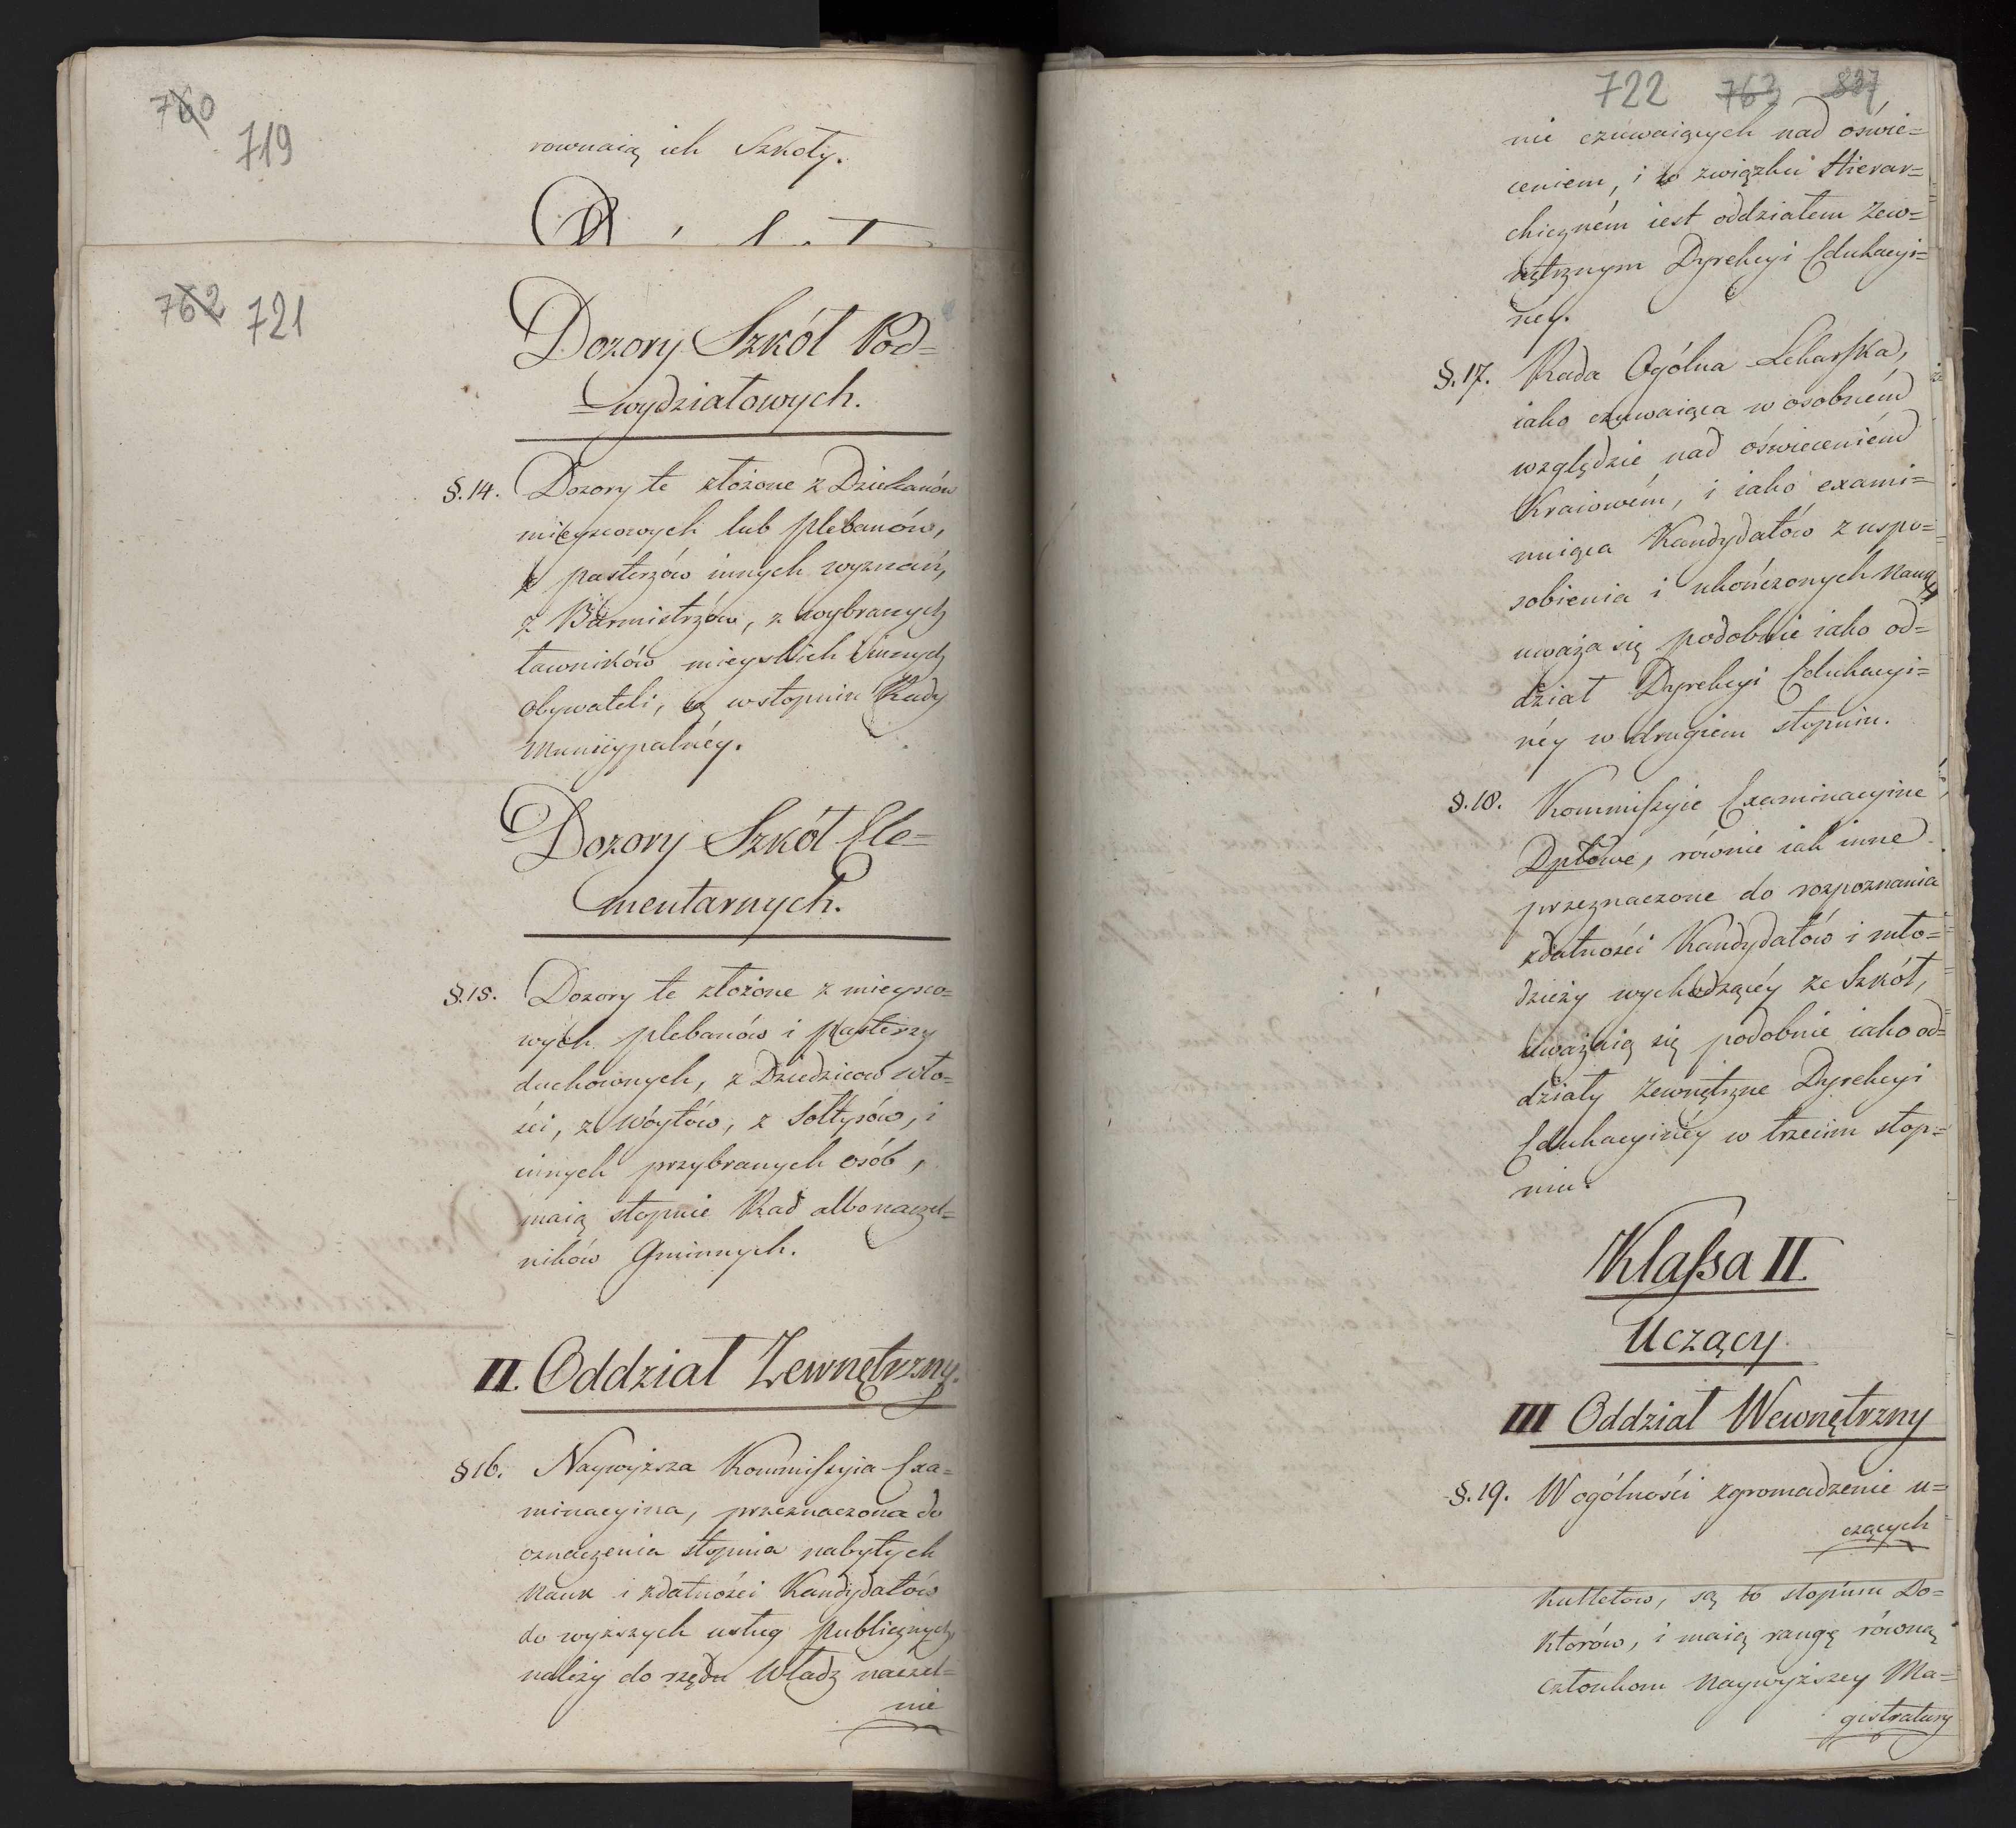 760
719
rownaią ich Szkoły.
762 721
Dozory Szkół Pod=
=wydziałowych.
§. 14. Dozory te złożone z Dziekanów
mieyscowych lub plebanów,
z pasterzów innych wyznań,
z Burmistrzów, z wybranych
ławników mieyskich i innych
obywateli, są w stopniu Rady
Municypalnéy.
Dozory Szkół Ele=
mentarnych.
§. 15. Dozory te złożone z mieysco=
wych plebanów i pasterzy
duchownych, z Dziedziców wło=
ści, z Wóytów, z Sołtysów, i
innych przybranych osób,
maią stopnie Rad albo naczel=
ników Gminnych.
II. Oddział Zewnętrzny.
§ 16. Naywyższa Kommissyia Exa=
minacyina, przeznaczona do
oznaczenia stopnia nabytych
nauk i zdatności Kandydatów
do wyższych usług publicznych,
należy do rzędu Władz naczel=
nie
722 763 837
nie czuwaiących nad oświe=
ceniem, i w związku Hierar=
chiczném iest oddziałem Zew=
nętrznym Dyrekcyi Edukacyi=
ney.
§. 17. Rada Ogólna Lekarska,
iako czuwaiąca w osobném
względzie nad oświeceniem
Kraiowém, i iako exami=
nuiąca Kandydatów z uspo=
sobienia i ukończonych Nauk,
uważa się podobnie iako od=
dział Dyrekcyi Edukacyi=
néy w drugiem stopniu.
§. 18. Kommissyie Examinacyine
Dptowe, równie iak inne
przeznaczone do rozpoznania
zdatności Kandydatów i mło=
dzieży wychodzącéy ze Szkół,
uważaią się podobnie iako od=
działy Zewnętrzne Dyrekcyi
Edukacyinéy w trzecim stop=
niu.
Klassa II.
Uczący
III Oddział Wewnętrzny
§. 19. W ogólności zgromadzenie u=
czących
kultetów, są w stopniu Do=
ktorów, i maią rangę równą
członkom Naywyższey Ma=
gistratury